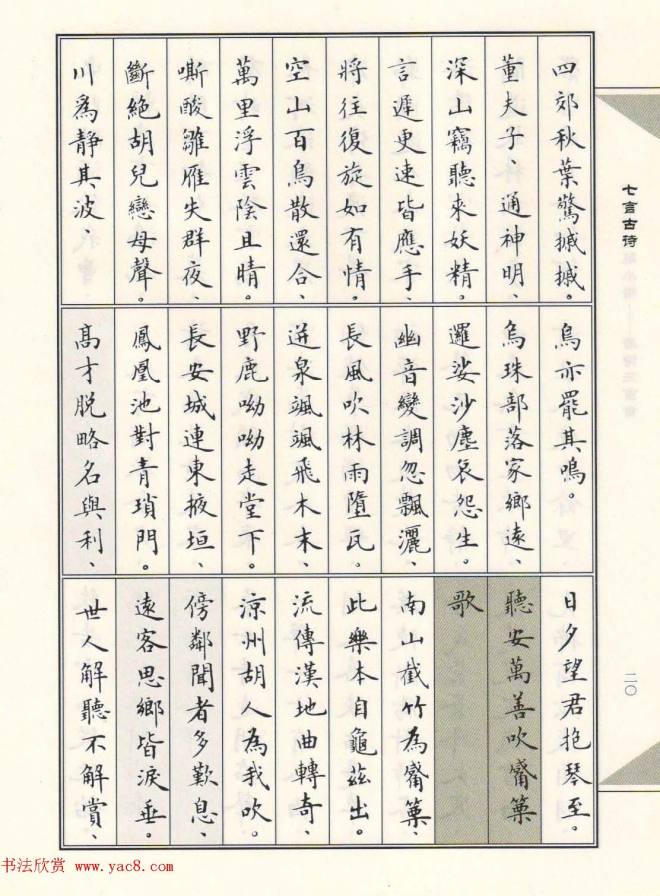 七言古诗
四郊秋葉驚摵摵。
董夫子、通神明、
深山竊聽來妖精。
言遲更速皆應手、
將往復旋如有情。
空山百鳥散還合、
萬里浮雲陰且晴。
嘶酸雛雁失群夜、
斷絕胡兒戀母聲。
川爲靜其波、
鳥亦罷其鳴。
烏珠部落家鄉遠、
邏娑沙塵哀怨生。
幽音變調忽飄灑、
長風吹林雨墮瓦。
迸泉颯颯飛木末、
野鹿呦呦走堂下。
長安城連東掖垣、
鳳凰池對青瑣門。
高才脱略名與利、
日夕望君抱琴至。
聽安萬善吹觱篥
歌
南山截竹為觱篥、
此樂本自龜茲出。
流傳漢地曲轉奇、
涼州胡人為我吹。
傍鄰聞者多歎息、
遠客思鄉皆淚垂。
世人解聽不解賞、
二〇
书法欣赏 www.yac8.com